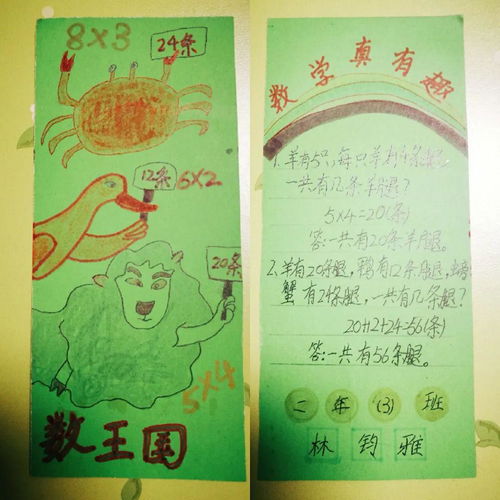 8×3
24条
12条
6×2
20条
5×4
数王国
数学真有趣
1.羊有5只,每只羊有4条腿,
一共有几条羊腿?
5×4=20(条)
答:一共有20条羊腿。
2.羊有20条腿,鸭有12条腿,螃
蟹有24条腿,一共有几条腿?
20+12+24=56(条)
答:一共有56条腿。
二年(3)班
林钧雅